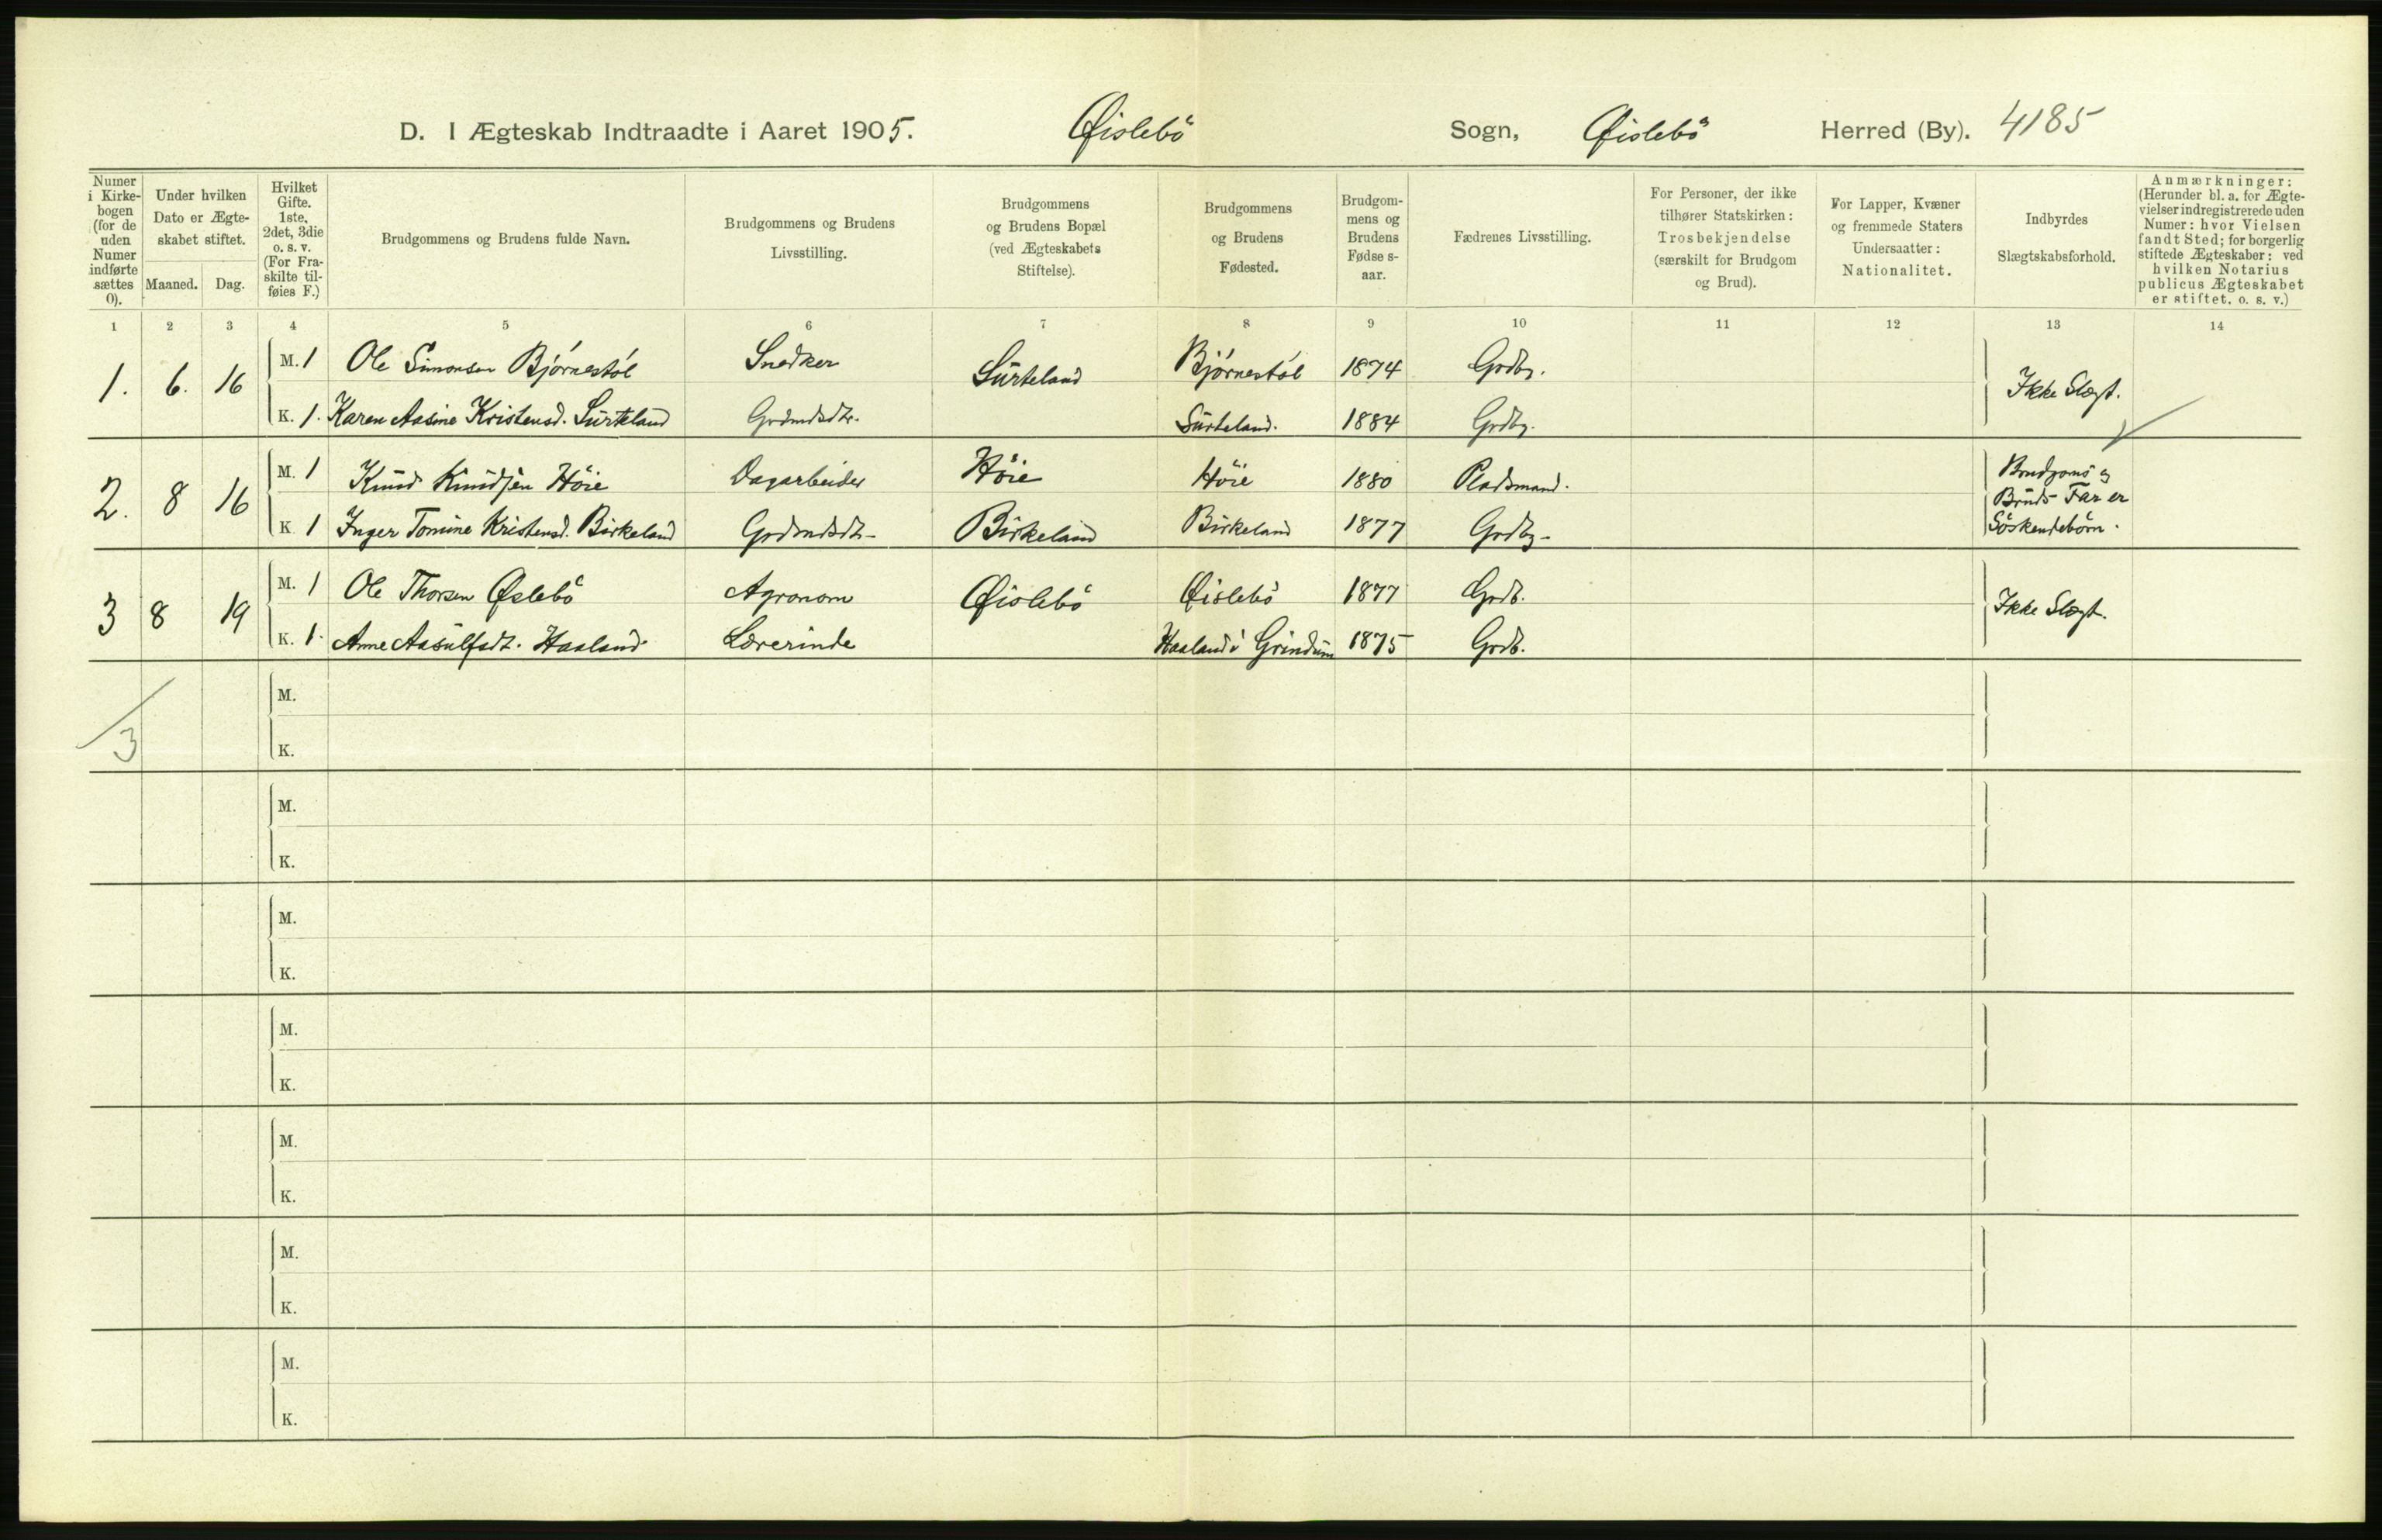 D. I Ægteskab Indtraadte i Aaret 1905. Øislebö Sogn, Øislebö Herred (By). 4185
Numer i Kirkebogen (for de uden Numer indførte sættes 0).
Under hvilken Dato er Ægteskabet stiftet.
Maaned. Dag.
Hvilket Gifte. 1ste, 2det, 3die o. s. v. (For Fraskilte tilføies F.)
Brudgommens og Brudens fulde Navn.
Brudgommens og Brudens Livsstilling.
Brudgommens og Brudens Bopæl (ved Ægteskabets Stiftelse).
Brudgommens og Brudens Fødested.
Brudgommens og Brudens Fødselsaar.
Fædrenes Livsstilling.
For Personer, der ikke tilhører Statskirken: Trosbekjendelse (særskilt for Brudgom og Brud).
For Lapper, Kvæner og fremmede Staters Undersaatter: Nationalitet.
Indbyrdes Slægtskabsforhold.
Anmærkninger: (Herunder bl. a. for Ægtevielser indregistrerede uden Numer: hvor Vielsen fandt Sted; for borgerlig stiftede Ægteskaber: ved hvilken Notarius publicus Ægteskabet er stiftet, o. s. v.)
1 2 3 4 5 6 7 8 9 10 11 12 13 14
1. 6. 16 M. 1 Ole Simonsen Bjørnestøl Snedker Surteland Bjørnestøl 1874 Grdbr. Ikke Slægt.
K. 1. Karen Aasine Kristensd. Surteland Grdmdsdtr. Surteland. 1884 Grdbr.
2. 8 16 M. 1 Knud Knudsen Höie Dagarbeider Höie Höie 1880 Pladsmand. Brudgoms og
K. 1 Inger Tomine Kristensd. Birkeland Grdmdsdtr. Birkeland Birkeland 1877 Grdbr. Bruds Far er
Söskendebörn.
3 8 19 M. 1 Ole Thorsen Øslebö Agronom Øislebö Øislebö 1877 Grdb. Ikke Slægt.
K. 1. Anne Aasulfsdt. Haaland Lærerinde Haaland i Grindum 1875 Grdb.
3
M.
K.
M.
K.
M.
K.
M.
K.
M.
K.
M.
K.
M.
K.